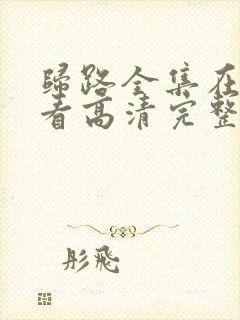 歸路全集在
看高清完整
彤飛